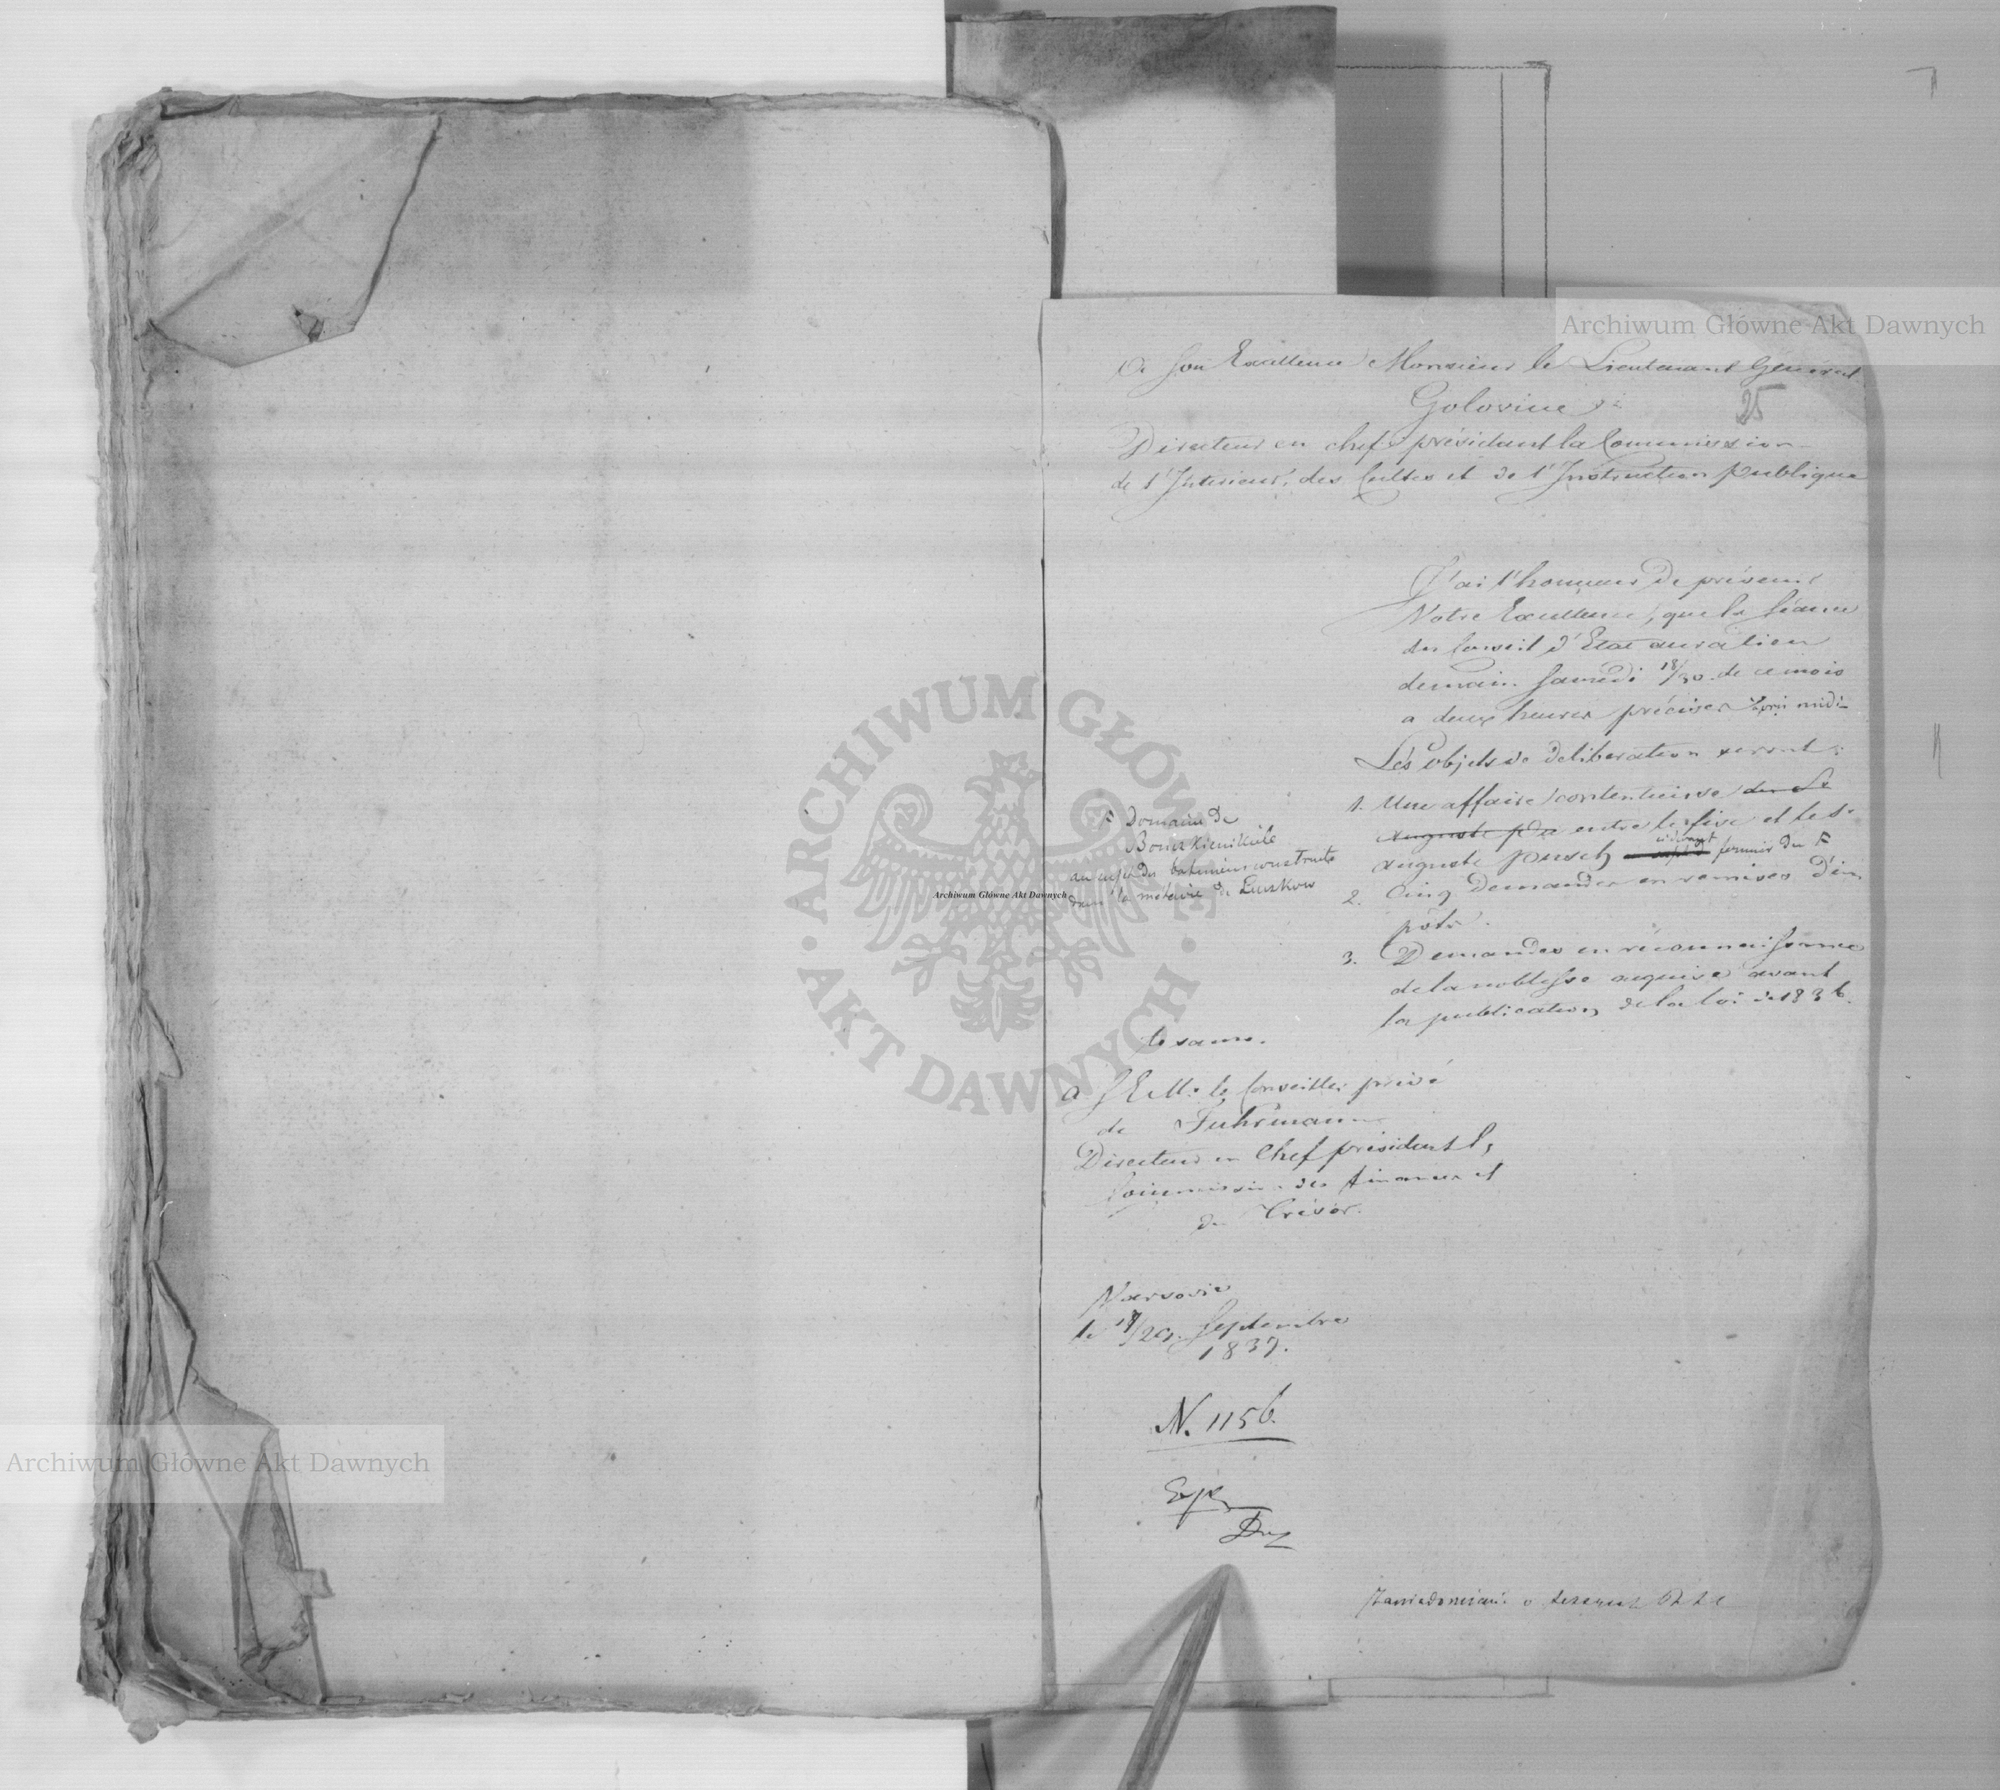 A Son Excellence Monsieur le Lieutenant Général
Golovine
25
Directeur en chef présidant la Commission
de l'Interieur, des Cultes et de l'Instruction publique
J'ai l'honneur de prévenir
Votre Excellence, que la séance
du Conseil d'Etat aura lieu
demain Samedi 18/30 de ce mois
a deux heures précises après midi
Les objets de deliberation seront:
1. Une affaire contentieuse
entre le fisc et le Sr
Auguste fermier du F
F Domaine de
au sujet des batimens construits
dans la metairie de Luszkow
2. Cinq Demandes en remises d'im
pots.
3. Demandes en reconnaissance
de la noblesse acquise avant
la publication de la loi de 1836.
le same.
a S E Mr le Conseiller privé
de Fuhrmann
Directeur en Chef présidant la
Commission des finances et
du Trésor.
Varsovie
le 17/29 Septembre
1837.
N. 1156.
Exp.
Archiwum Główne Akt Dawnych
Archiwum Główne Akt Dawnych
Archiwum Główne Akt Dawnych
ARCHIWUM GŁÓWNE
AKT DAWNYCH